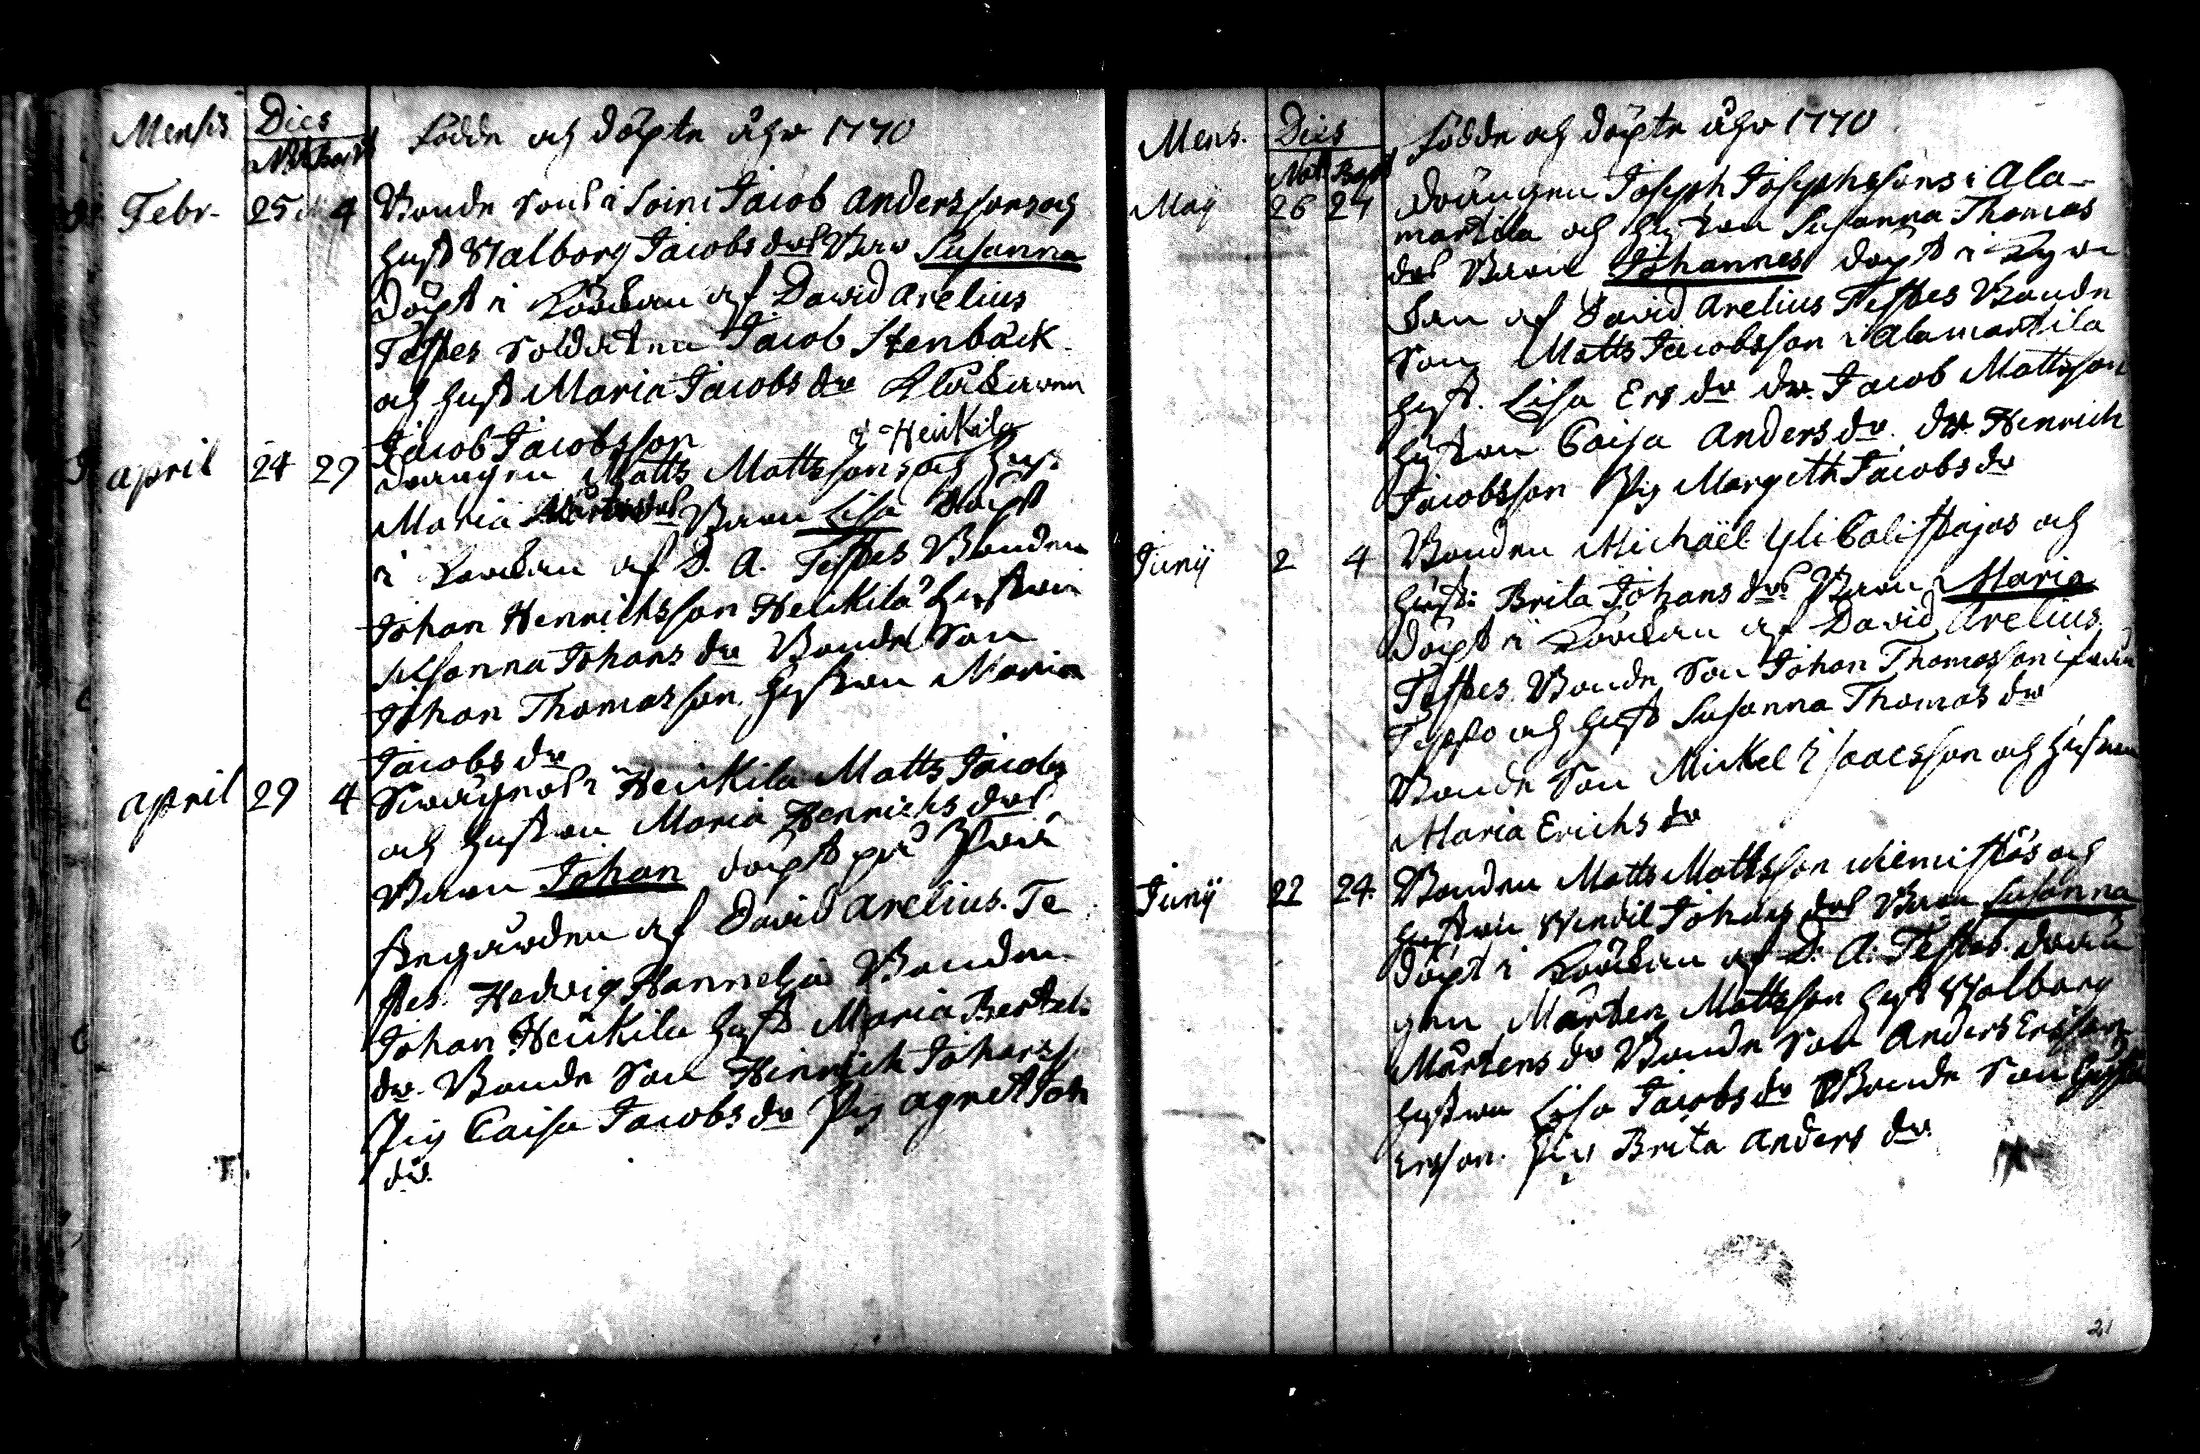 Mensis Dies Födde och döpte åhr 1770
Nat. Bapt
Febr. 25 4 Bonde Sons i Soini Jacob Anderssons och
hust Walborg Jacobs drs Barn Susanna
döpt i Kyrkan af David Arelius
Testes Soldaten Jacob Stenbäck
och hust Maria Jacobs dr Klåckaren
Jacob Jacobsson
i Heickila
April 24 29 drängen Matts Mattssons och hust
Maria Mårtensdrs Barn Lisa döpt
i Kyrkan af D. A. Testes Bonden
Johan Henrichsson Heickila hustrun
Susanna Johans dr Bonde Son
Johan Thomasson hustrun Maria
Jacobs dr
April 29 4 Swågrens i Heickila Matts Jacobs
och hustrun Maria Henrichs drs
Barn Johan döpt på Prä
stegården af David Arelius. Te
stes. Hedvig Hannelia Bonden
Johan Heickila hust Maria Bertels
dr. Bonde Son Hinrich Johanss
Pig Caisa Jacobs dr Pig Agnet Joh
dr.
Mens. Dies Födde och döpte åhr 1770
Nat. Bapt
May 26 27 drängen Joseph Josephssons i Ala-
martila och hustrun Susanna Thomas
drs Barn Johannes döpt i Kyr
kan af David Arelius Testes Bonde
Son Matts Jacobsson i Alamartila
hust. Lisa Ers dr dr. Jacob Mattsson
hustrun Caisa Anders dr. dr. Hinrich
Jacobsson Pig Margeth Jacobs dr
Junij 2 4 Bonden Michaël Yli Calistajas och
hust: Brita Johans drs Barn Maria
döpt i Kyrkan af David Arelius
Testes. Bonde Son Johan Thomasson ifrån
och hust Susanna Thomas dr
Bonde Son Mickel Isaacsson och hustrun
Maria Erichs dr
Junij 22 24. Bonden Matts Mattsson Niemistös och
hustrun Wendil Johans drs Barn Susanna
döpt i Kyrkan af D. A. Testes. drän
gen Mårten Mattsson hust Walborg
Mårtens dr Bonde Son Anders Ersson
hustrun Lisa Jacobs dr Bonde Son
Ersson. Pig Brita Anders dr
21